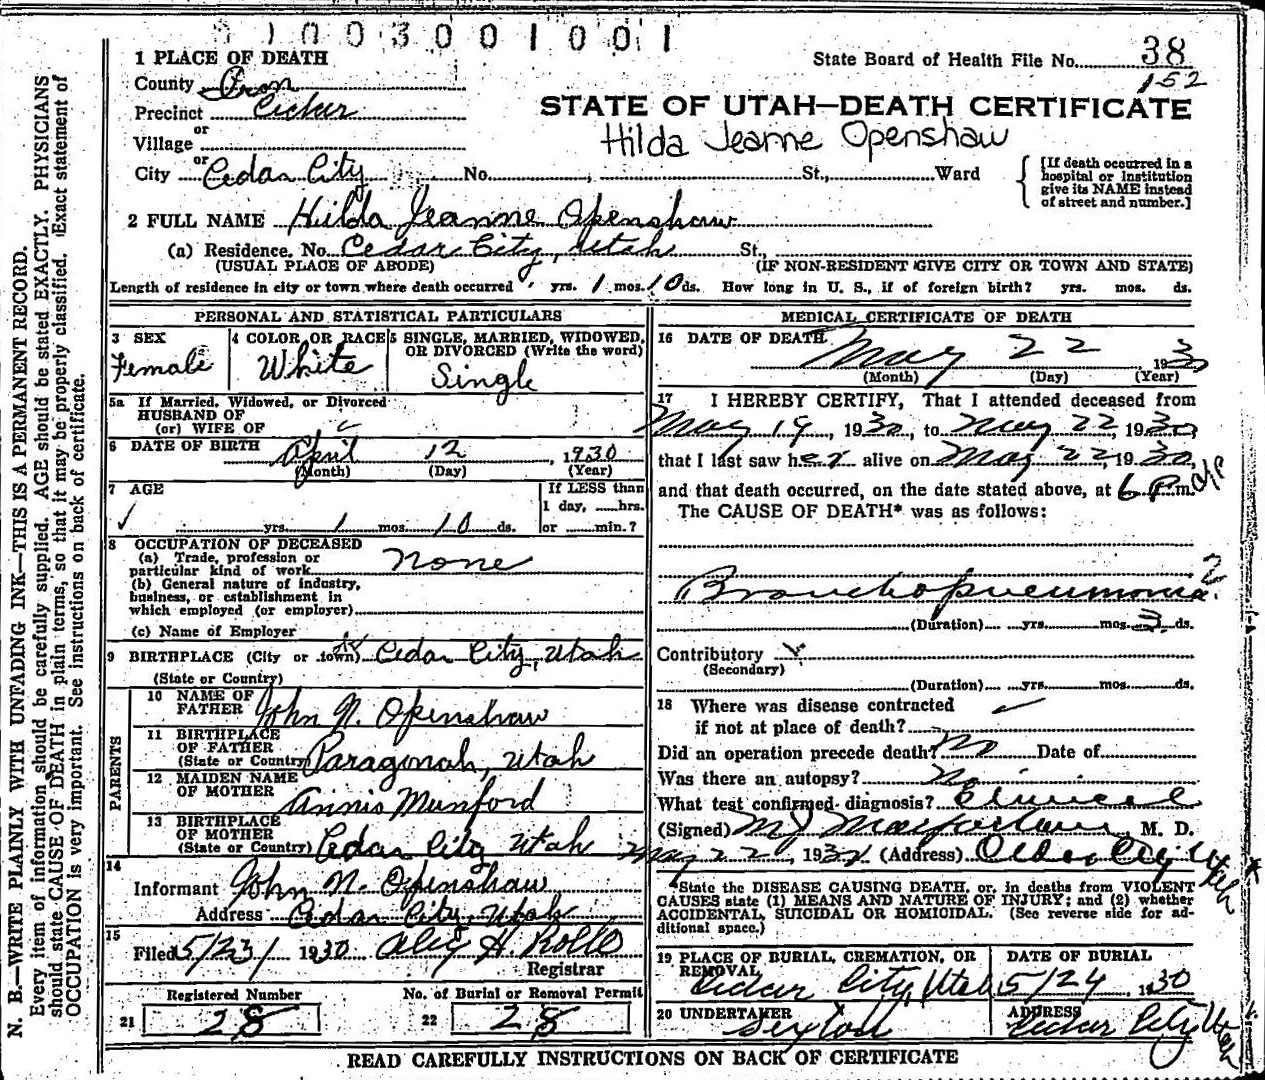 N. B.—WRITE PLAINLY WITH UNFADING INK—THIS IS A PERMANENT RECORD.
Every item of information should be carefully supplied. AGE should be stated EXACTLY. PHYSICIANS
should state CAUSE OF DEATH in plain terms, so that it may be properly classified. Exact statement of
OCCUPATION is very important. See instructions on back of certificate.
1003001001
1 PLACE OF DEATH
State Board of Health File No. 38
152
County Iron
STATE OF UTAH—DEATH CERTIFICATE
Precinct Cedar
Hilda Jeanne Openshaw
or
Village
or
City Cedar City No. , St., Ward
[If death occurred in a
hospital or institution
give its NAME instead
of street and number.]
2 FULL NAME Hilda Jeanne Openshaw
(a) Residence. No. Cedar City, Utah St.,
(USUAL PLACE OF ABODE) (IF NON-RESIDENT GIVE CITY OR TOWN AND STATE)
Length of residence in city or town where death occurred yrs. 1 mos. 10 ds. How long in U. S., if of foreign birth? yrs. mos. ds.
PERSONAL AND STATISTICAL PARTICULARS
3 SEX
Female
4 COLOR OR RACE
White
5 SINGLE, MARRIED, WIDOWED,
OR DIVORCED (Write the word)
Single
5a If Married, Widowed, or Divorced
HUSBAND OF
(or) WIFE OF
6 DATE OF BIRTH
April 12, 1930
(Month) (Day) (Year)
7 AGE
yrs. 1 mos. 10 ds.
If LESS than
1 day, hrs.
or min.?
8 OCCUPATION OF DECEASED
(a) Trade, profession or
particular kind of work None
(b) General nature of industry,
business, or establishment in
which employed (or employer)
(c) Name of Employer
9 BIRTHPLACE (City or town) Cedar City, Utah
(State or Country)
PARENTS
10 NAME OF
FATHER John N. Openshaw
11 BIRTHPLACE
OF FATHER
(State or Country) Paragonah, Utah
12 MAIDEN NAME
OF MOTHER Annis Munford
13 BIRTHPLACE
OF MOTHER
(State or Country) Cedar City Utah
14
Informant John N. Openshaw
Address Cedar City, Utah
15
Filed 5/23/ 1930 Alex H. Rollo
Registrar
Registered Number No. of Burial or Removal Permit
21 28 22 28
MEDICAL CERTIFICATE OF DEATH
16 DATE OF DEATH
May 22 1930
(Month) (Day) (Year)
17 I HEREBY CERTIFY, That I attended deceased from
May 19, 1930, to May 22, 1930,
that I last saw her alive on May 22, 1930,
and that death occurred, on the date stated above, at 6 P.m.
The CAUSE OF DEATH* was as follows:
Bronchopneumonia
(Duration) yrs. mos. 3 ds.
Contributory
(Secondary)
(Duration) yrs. mos. ds.
18 Where was disease contracted
if not at place of death?
Did an operation precede death? No Date of
Was there an autopsy? No
What test confirmed diagnosis? Clinical
(Signed) M J Macfarlane, M. D.
May 22, 1930 (Address) Cedar City Utah
*State the DISEASE CAUSING DEATH, or, in deaths from VIOLENT
CAUSES state (1) MEANS AND NATURE OF INJURY; and (2) whether
ACCIDENTAL, SUICIDAL OR HOMICIDAL. (See reverse side for ad-
ditional space.)
19 PLACE OF BURIAL, CREMATION, OR
REMOVAL
Cedar City, Utah
DATE OF BURIAL
5/24 1930
20 UNDERTAKER
Sexton
ADDRESS
Cedar City Utah
READ CAREFULLY INSTRUCTIONS ON BACK OF CERTIFICATE